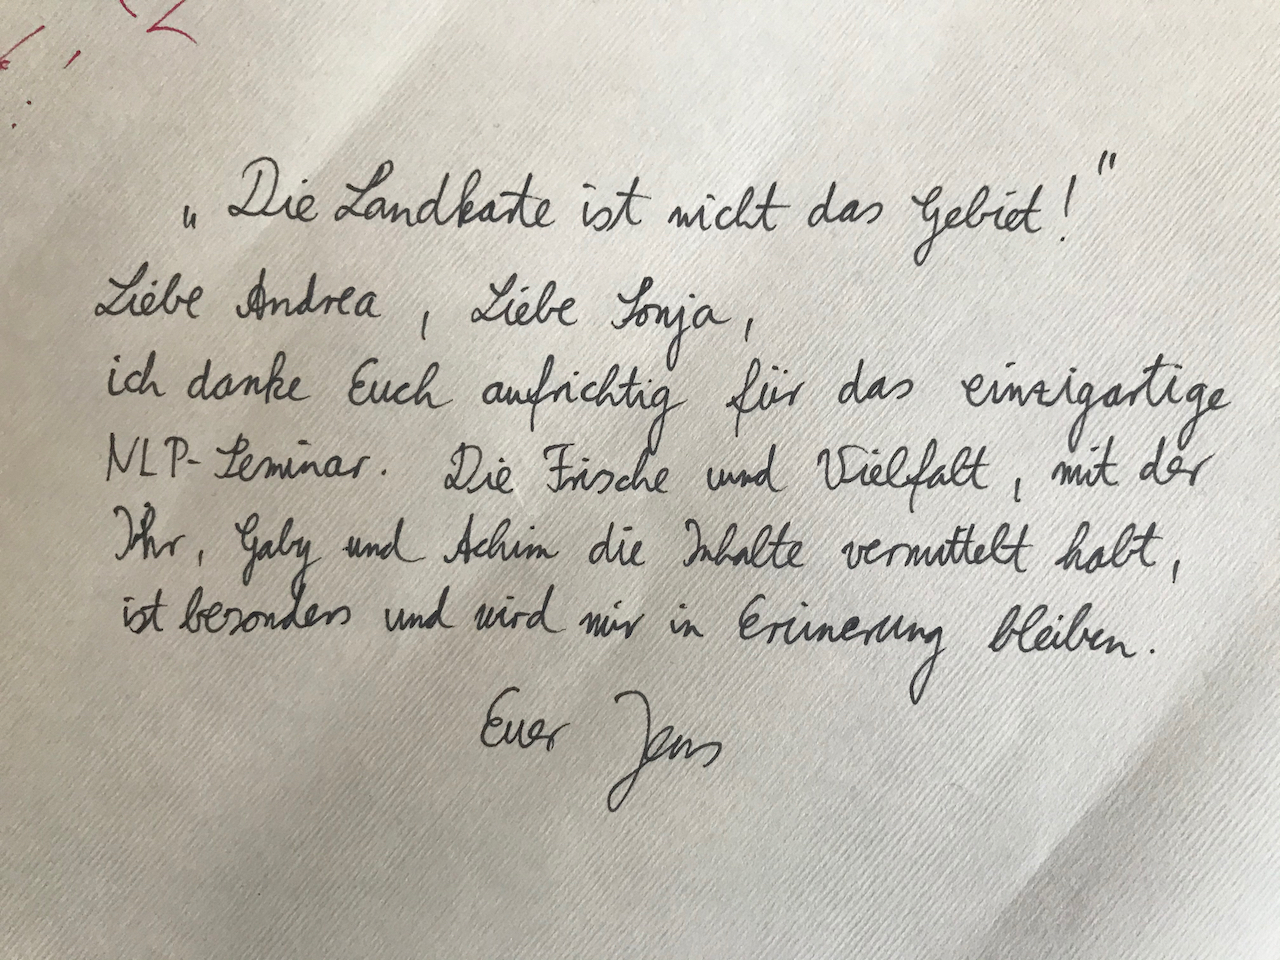 „Die Landkarte ist nicht das Gebiet!"
Liebe Andrea, Liebe Sonja,
ich danke Euch aufrichtig für das einzigartige
NLP-Seminar. Die Frische und Vielfalt, mit der
Ihr, Gaby und Achim die Inhalte vermittelt habt,
ist besonders und wird mir in Erinnerung bleiben.
Euer Jens